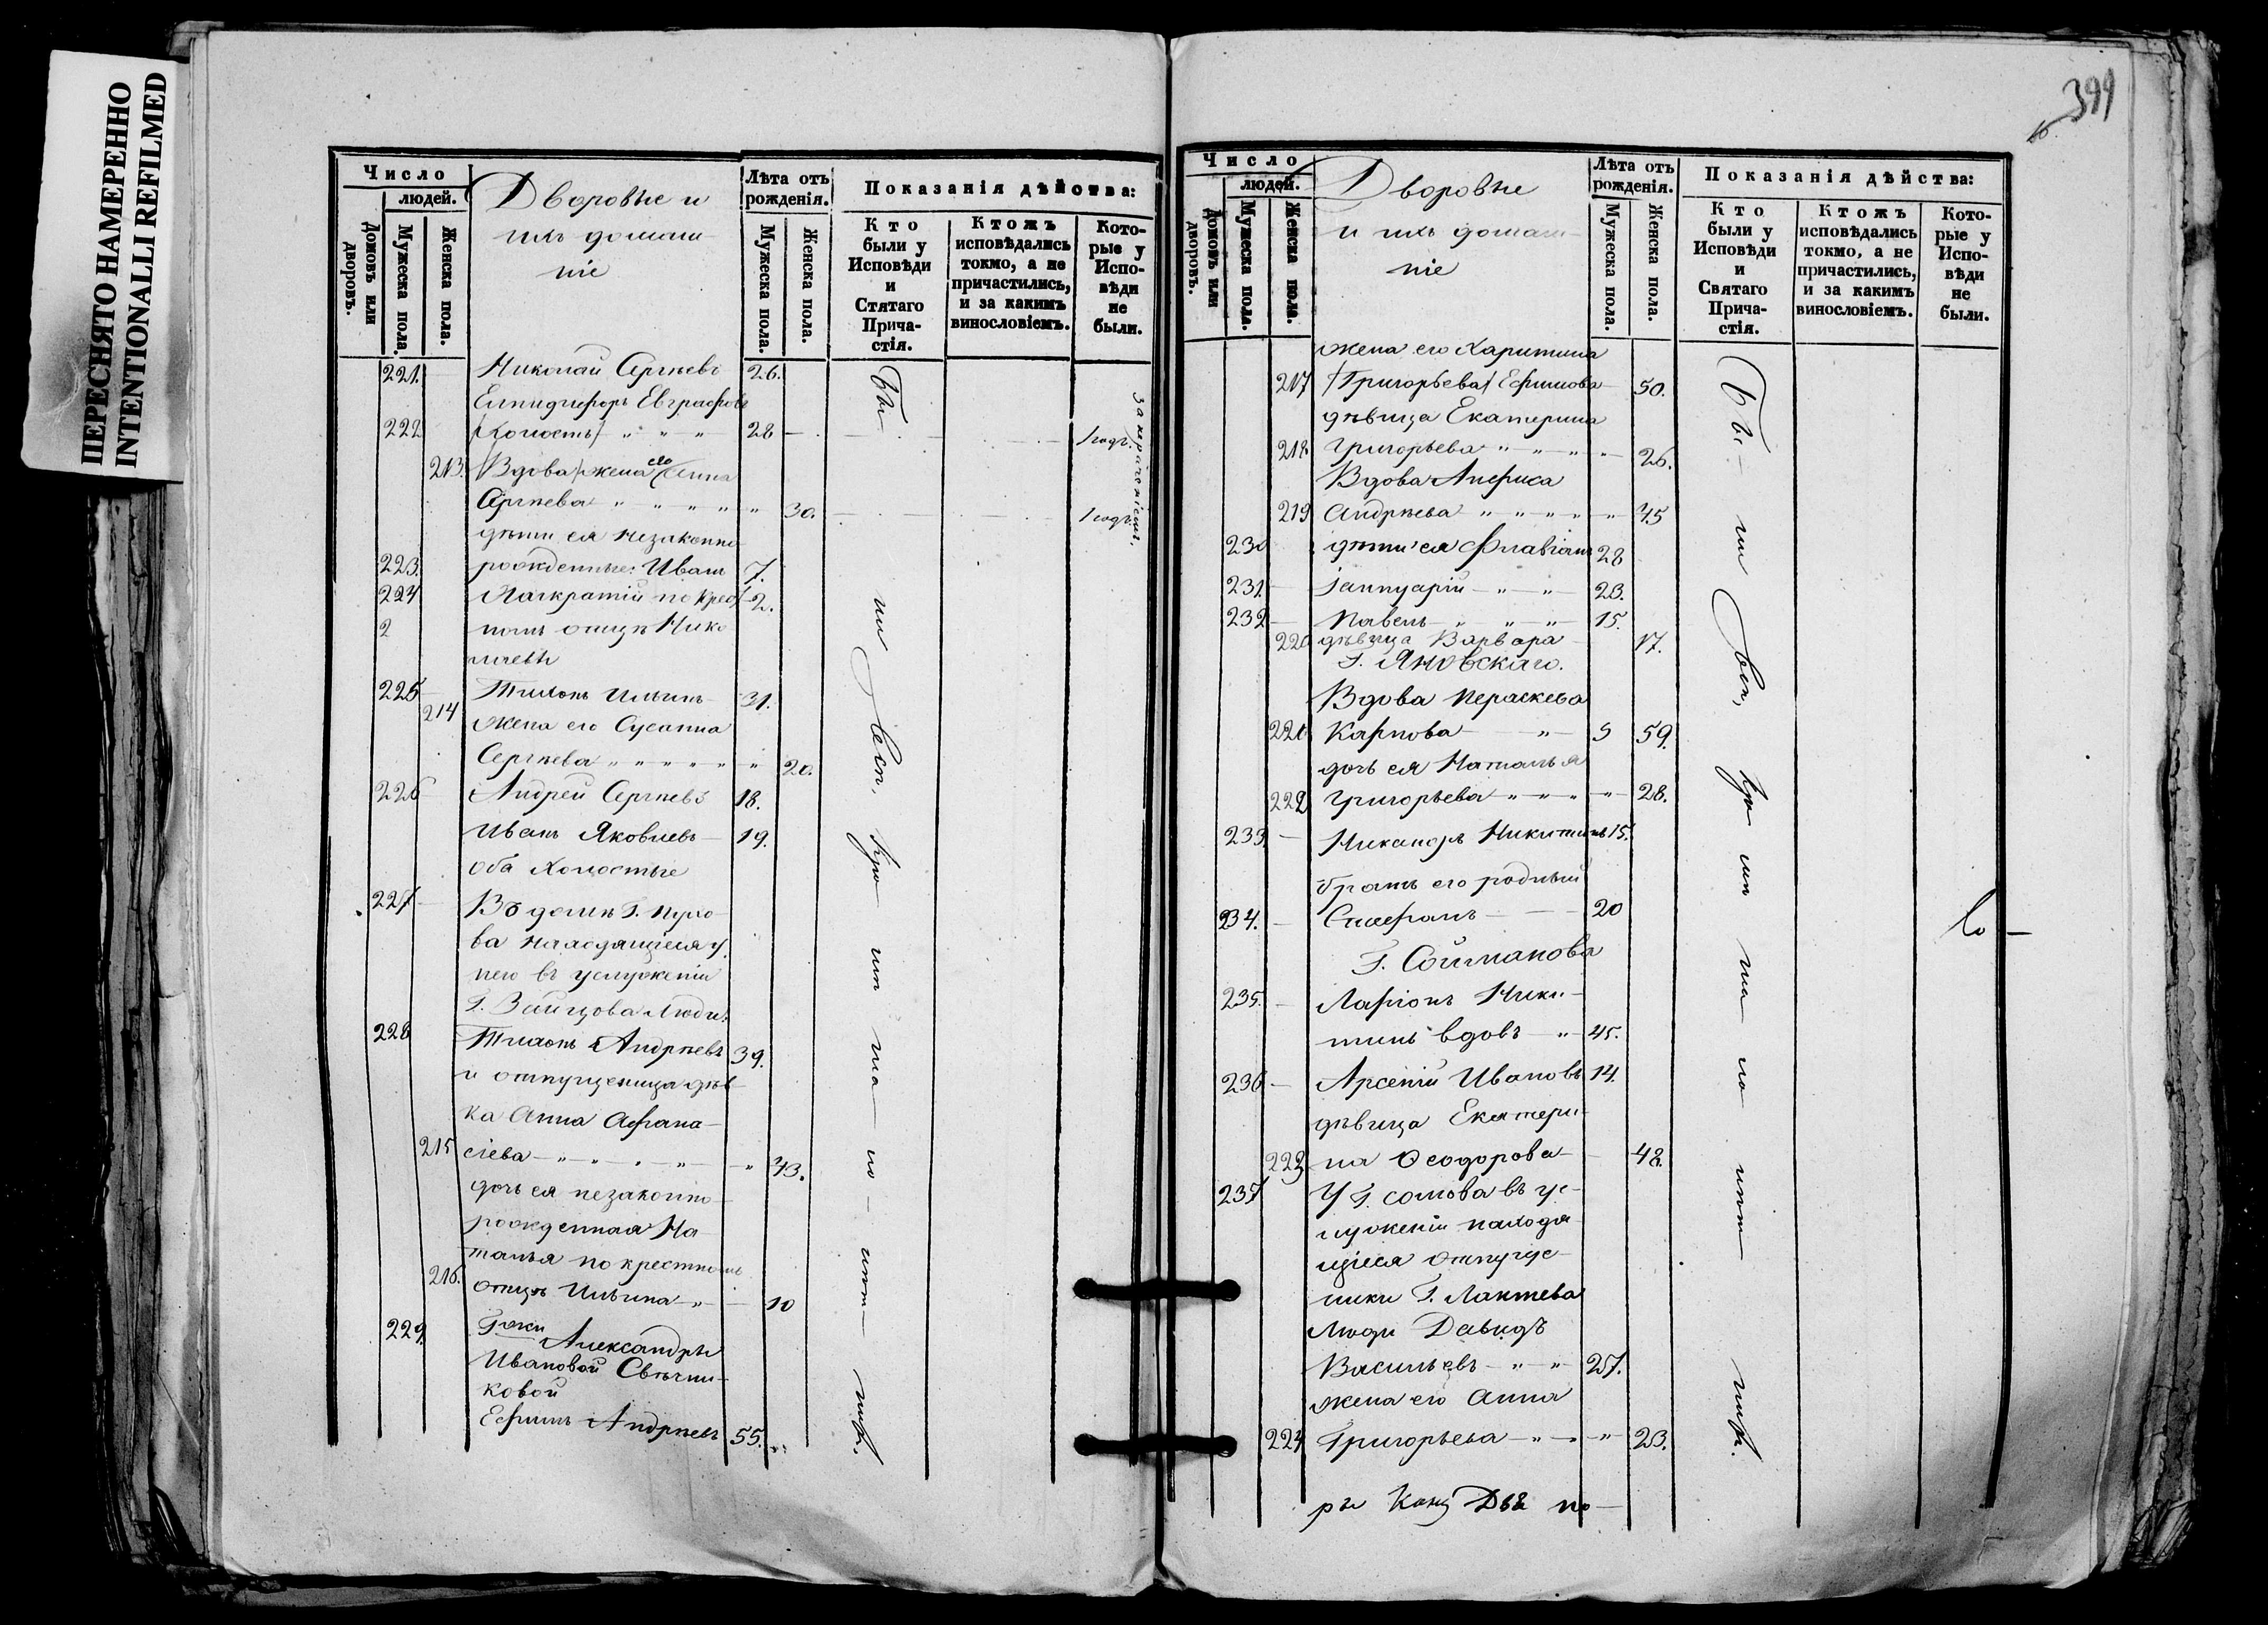 ПЕРЕСНЯТО НАМЕРЕННО
INTENTIONALLI REFILMED
Число
людей.
Домовъ или дворовъ.
Мужеска пола.
Женска пола.
Дворовые и
ихъ домаш-
ніе
Лѣта отъ рожденія.
Мужеска пола.
Женска пола.
Показанія дѣйства:
Кто были у Исповѣди и Стятаго Прича-стія.
Ктожъ исповѣдались токмо, а не причастились, и за какимъ винословіемъ.
Кото-рые у Испо-вѣди не были.
221. Николай Сергѣевъ 26.
Елпидифоръ Евграфовъ
222 Холостъ " " " 28 1 годъ.
213. Вдова жена его Анна
Сергѣева " " " " " 30. 1 годъ.
дѣти ея незаконно
223. рожденные: Иванъ 7.
224 Панкратій по крес 2.
2 номъ отцѣ Нико
лаевы
225 Тихонъ Ильинъ 31.
214 жена его Сусанна
Сергѣева " " " " " " 20.
226 Андрей Сергѣевъ 18.
Иванъ Яковлевъ 19.
оба холостые
227 Въ домѣ Г. Пухо-
ва находящіеся у
него въ услуженіи
Г. Зайцова люди:
228 Тихонъ Андрѣевъ 39.
и отпущеница дѣв-
ка Анна Афана-
215 сіева " " " " " 43.
дочь ея незаконно-
рожденная На-
талья по крестномъ
216. отцѣ Ильина " 10
229. Г-жи Александры
Ивановой Свѣчни-
ковой
Ефимъ Андрѣевъ 55.
за отлученіемъ.
Бы-
ли
399
Число
людей.
Домовъ или дворовъ.
Мужеска пола.
Женска пола.
Дворовые
и ихъ домаш-
ніе
Лѣта отъ рожденія.
Мужеска пола.
Женска пола.
Показанія дѣйства:
Кто были у Исповѣди и Святаго Прича-стія.
Ктожъ исповѣдались токмо, а не причастились, и за какимъ винословіемъ.
Кото-рые у Испо-вѣди не были.
жена его Харитина
217 (Григорьева) Ефимова 50.
дѣвица Екатерина
218. Григорьева " " " " 26.
Вдова Анфиса
219 Андрѣева " " " " " 45
230 дѣти ея Флавіанъ 28
231. Іаннуарій " " 23.
232 Павелъ " " " 15.
220 дѣвица Варвара 17.
Г. Яновскаго.
Вдова Пераскева
221 Карпова " 59.
дочь ея Наталья
222 Григорьева " " " " 28.
233. Никаноръ Никитинъ 15.
братъ его родный
234. Стефанъ 20
Г. Сойманова
235. Ларіонъ Ники-
тинъ вдовъ " 45.
236 Арсеній Ивановъ 14.
дѣвица Екатери-
223 на Ѳеодорова 48.
237 У Г. Сомова въ ус-
луженіи находя-
щіеся отпуще-
ники Г. Лаптева
люди Давидъ
Васильевъ " " 27.
жена его Анна
224 Григорьева " " " 23.
Бы-
ли